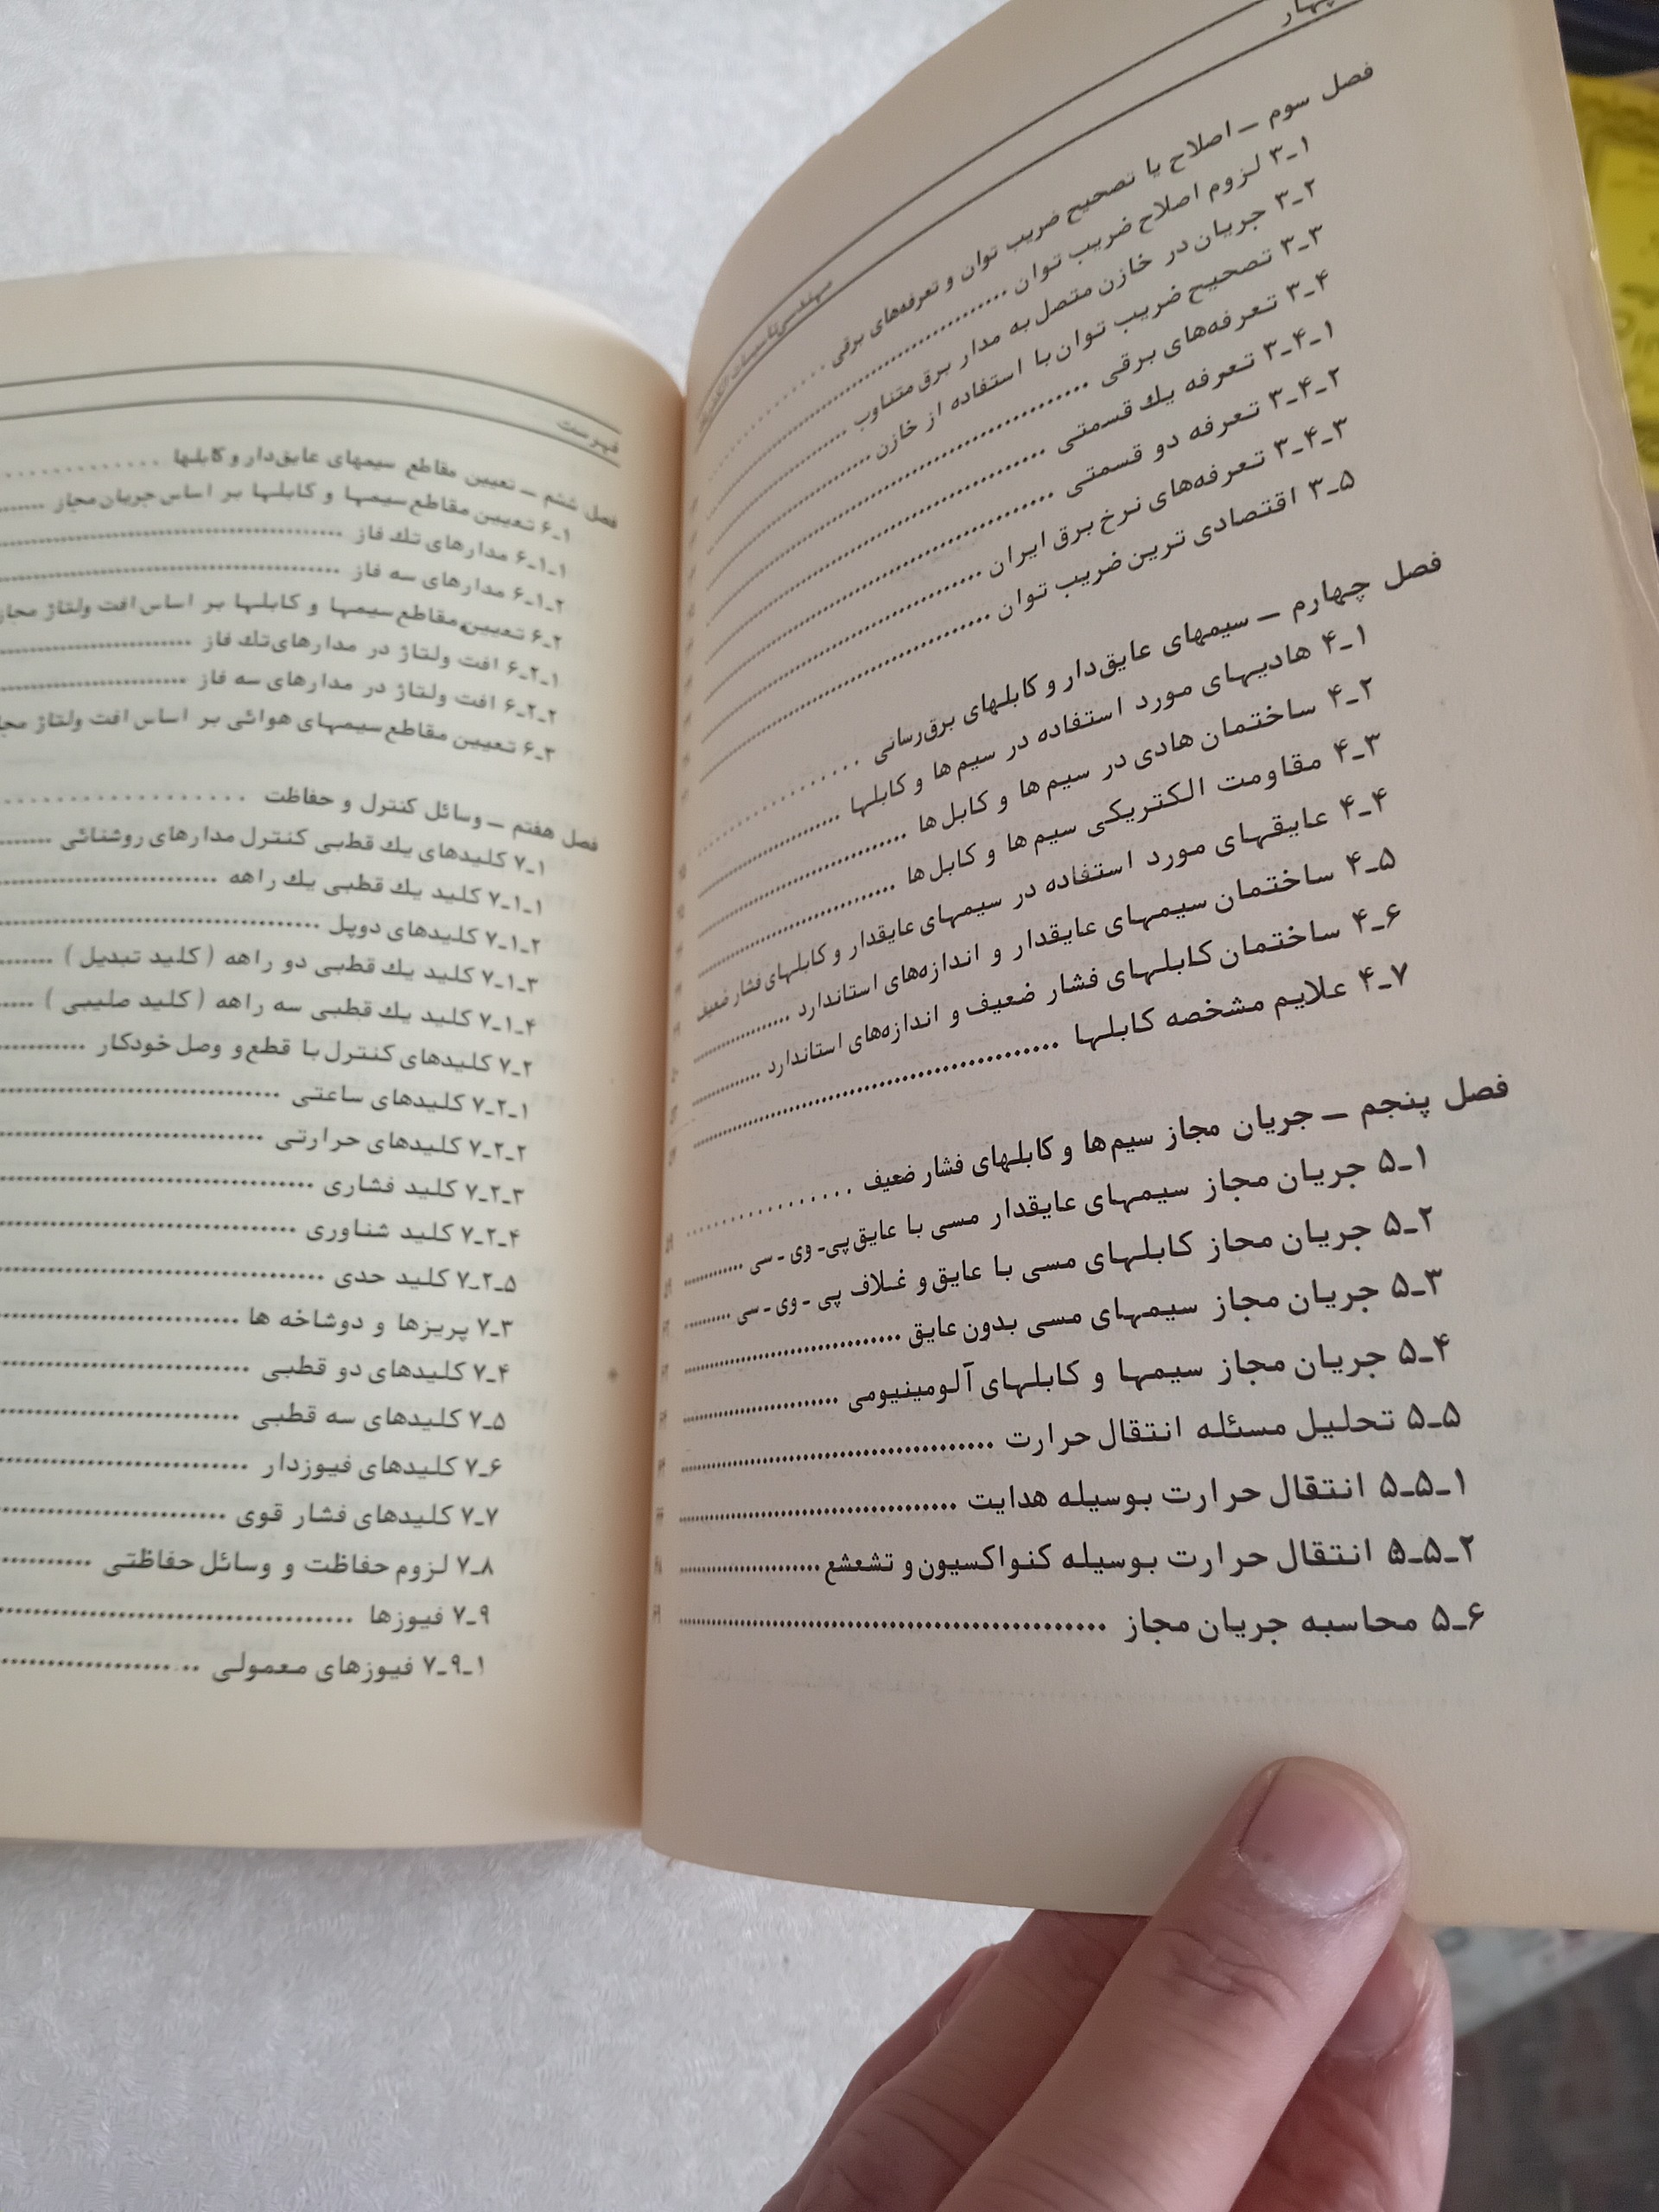 چهار
مهندسی تاسیسات الکتریکی
فصل سوم ــ اصلاح یا تصحیح ضریب توان و تعرفه‌های برقی
۳ـ۱ لزوم اصلاح ضریب توان
۳ـ۲ جریان در خازن متصل به مدار برق متناوب
۳ـ۳ تصحیح ضریب توان با استفاده از خازن
۳ـ۴ تعرفه‌های برقی
۳ـ۴ـ۱ تعرفه یك قسمتی
۳ـ۴ـ۲ تعرفه دو قسمتی
۳ـ۴ـ۳ تعرفه‌های نرخ برق ایران
۳ـ۵ اقتصادی ترین ضریب توان
فصل چهارم ــ سیمهای عایق‌دار و کابلهای برق‌رسانی
۴ـ۱ هادیهای مورد استفاده در سیم ها و کابلها
۴ـ۲ ساختمان هادی در سیم ها و کابل ها
۴ـ۳ مقاومت الکتریکی سیم ها و کابل ها
۴ـ۴ عایقهای مورد استفاده در سیمهای عایقدار و کابلهای فشار ضعیف
۴ـ۵ ساختمان سیمهای عایقدار و اندازه‌های استاندارد
۴ـ۶ ساختمان کابلهای فشار ضعیف و اندازه‌های استاندارد
۴ـ۷ علایم مشخصه کابلها
فصل پنجم ــ جریان مجاز سیم‌ها و کابلهای فشار ضعیف
۵ـ۱ جریان مجاز سیمهای عایقدار مسی با عایق پی ـ وی ـ سی
۵ـ۲ جریان محاز کابلهای مسی با عایق و غلاف پی ـ وی ـ سی
۵ـ۳ جریان مجاز سیمهای مسی بدون عایق
۵ـ۴ جریان مجاز سیمها و کابلهای آلومینیومی
۵ـ۵ تحلیل مسئله انتقال حرارت
۵ـ۵ـ۱ انتقال حرارت بوسیله هدایت
۵ـ۵ـ۲ انتقال حرارت بوسیله کنواکسیون و تشعشع
۵ـ۶ محاسبه جریان مجاز
فهرست
فصل ششم ــ تعیین مقاطع سیمهای عایق‌دار و کابلها
۶ـ۱ تعیین مقاطع سیمها و کابلها بر اساس جریان مجاز
۶ـ۱ـ۱ مدارهای تك فاز
۶ـ۱ـ۲ مدارهای سه فاز
۶ـ۲ تعیین مقاطع سیمها و کابلها بر اساس افت ولتاژ مجاز
۶ـ۲ـ۱ افت ولتاژ در مدارهای تك فاز
۶ـ۲ـ۲ افت ولتاژ در مدارهای سه فاز
۶ـ۳ تعیین مقاطع سیمهای هوائی بر اساس افت ولتاژ
فصل هفتم ــ وسائل کنترل و حفاظت
۷ـ۱ کلیدهای یك قطبی کنترل مدارهای روشنائی
۷ـ۱ـ۱ کلید یك قطبی یك راهه
۷ـ۱ـ۲ کلیدهای دوپل
۷ـ۱ـ۳ کلید یك قطبی دو راهه ( کلید تبدیل )
۷ـ۱ـ۴ کلید یك قطبی سه راهه ( کلید صلیبی )
۷ـ۲ کلیدهای کنترل با قطع و وصل خودکار
۷ـ۲ـ۱ کلیدهای ساعتی
۷ـ۲ـ۲ کلیدهای حرارتی
۷ـ۲ـ۳ کلید فشاری
۷ـ۲ـ۴ کلید شناوری
۷ـ۲ـ۵ کلید حدی
۷ـ۳ پریزها و دوشاخه ها
۷ـ۴ کلیدهای دو قطبی
۷ـ۵ کلیدهای سه قطبی
۷ـ۶ کلیدهای فیوزدار
۷ـ۷ کلیدهای فشار قوی
۷ـ۸ لزوم حفاظت و وسائل حفاظتی
۷ـ۹ فیوزها
۷ـ۹ـ۱ فیوزهای معمولی